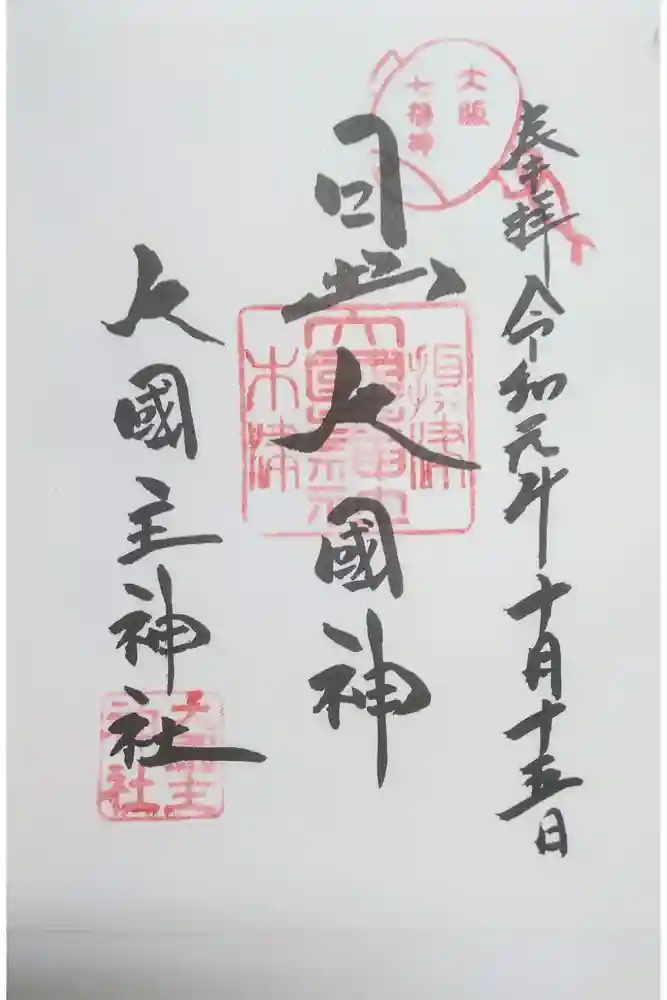 奉拝 令和元年十月十五日
大阪
七福神
日出大國神
木津
大國主神社
大國主
神社